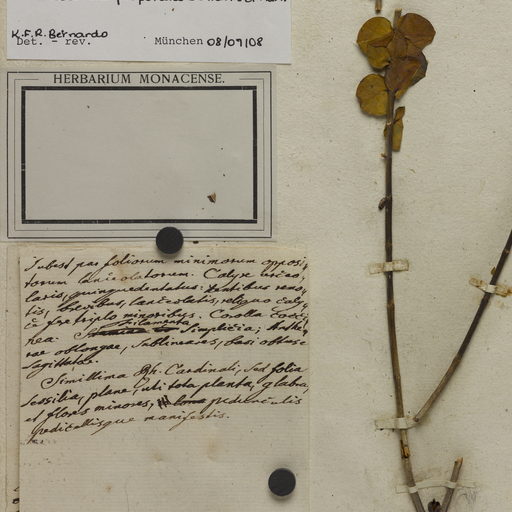 K.F.R. Bernardo
Det. - rev. München 08/09/08
HERBARIUM MONACENSE.
Subest par foliorum minimorum opposi-
torum lanceolatorum. Calyx urceo-
laris, quinquedentatus: dentibus
tis, brevibus, lanceolatis, reliquo caly-
ce fere triplo minoribus. Corolla cocci-
nea. Filamenta simplicia; Anthe-
rae oblongae, sublineares, basi obtuse
sagittatae.
Simillima Rh. Cardinali, sed folia
sessilia, plane, uti tota planta, glabra,
et flores minores, pedunculis
pedicellisque manifestis.